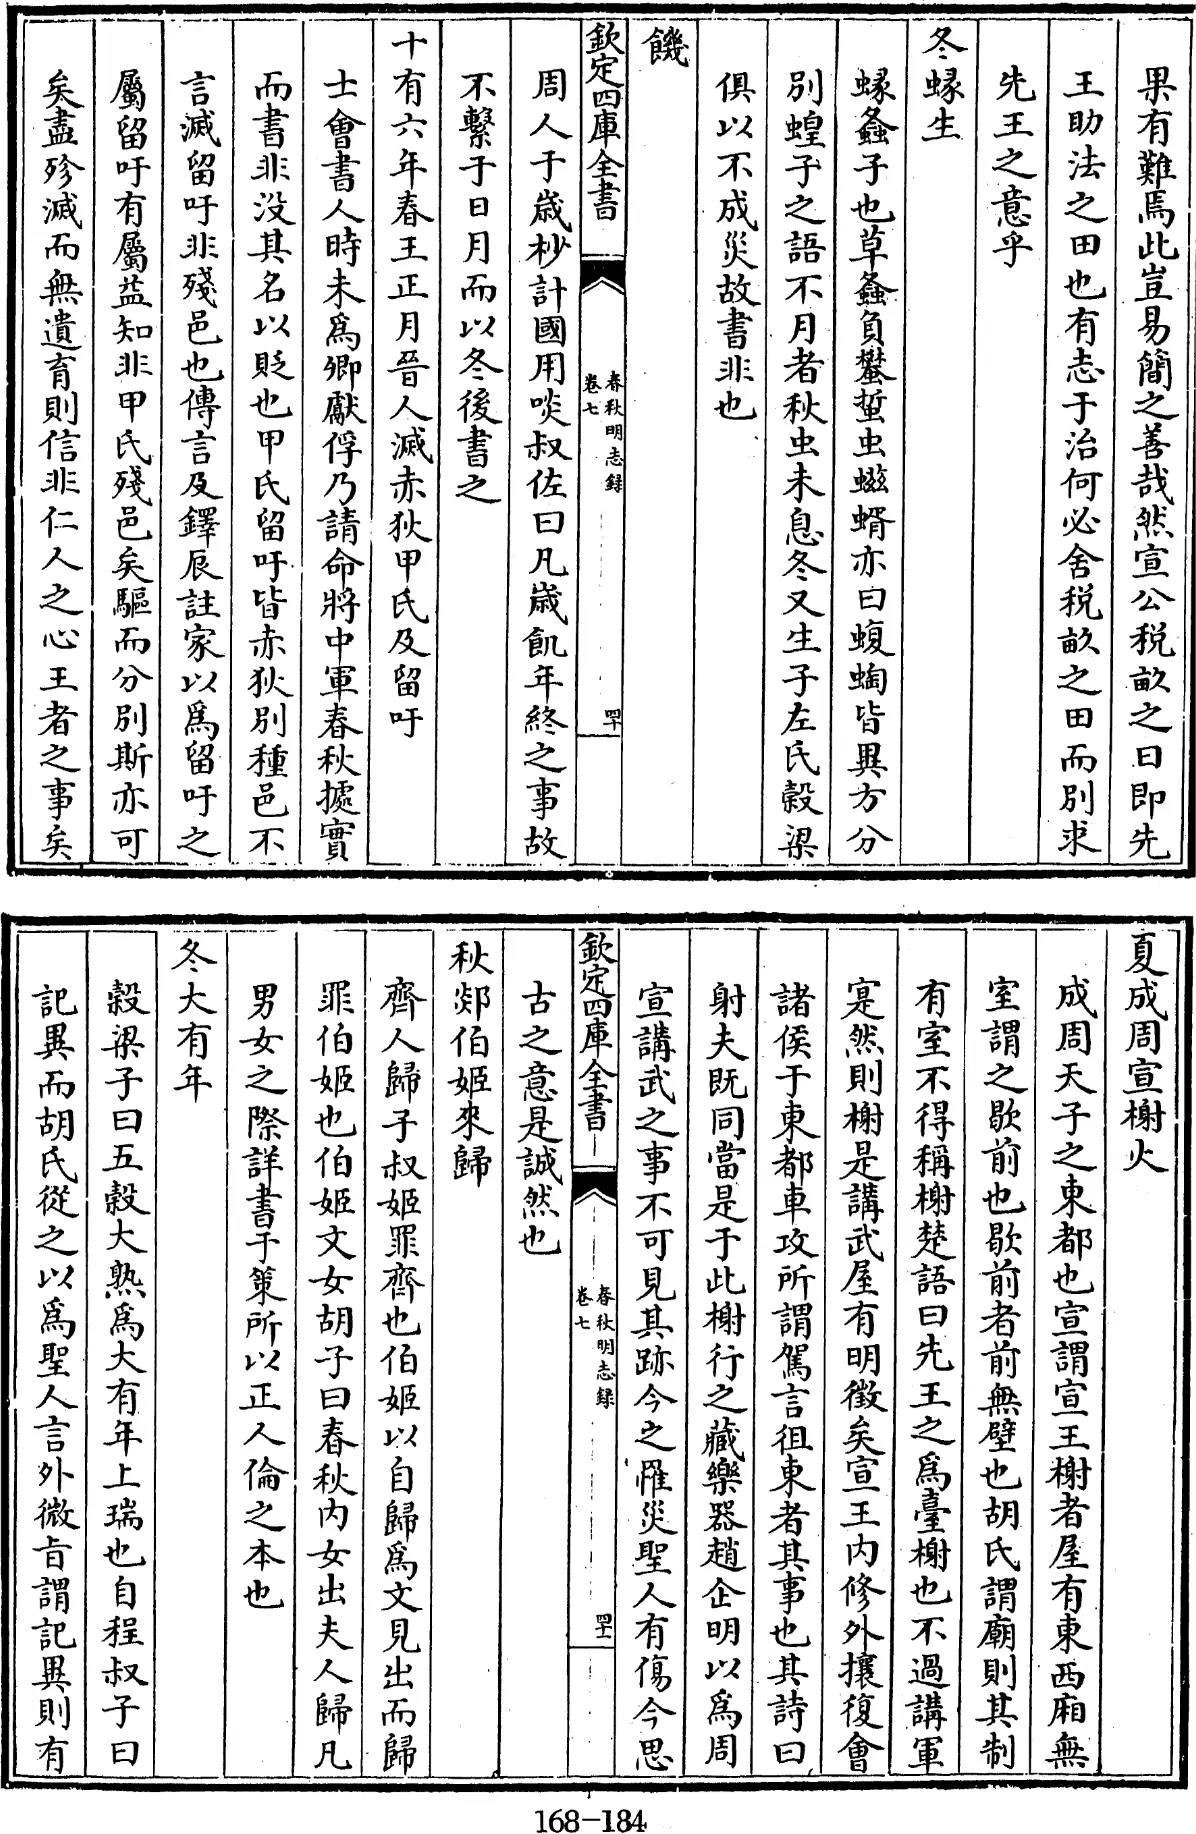 果有難焉此豈易簡之善哉然宣公税畝之日即先
王助法之田也有志于治何必舍税畝之田而別求
先王之意乎
冬蝝生
蝝螽子也草螽負蠜蜇虫螆蝑亦曰蝮蜪皆異方分
別蝗子之語不月者秋虫未息冬又生子左氏榖梁
俱以不成災故書非也
饑
欽定四庫全書
春秋明志録
卷七
四十
周人于歳杪計國用啖叔佐曰凡歳飢年終之事故
不繫于日月而以冬後書之
十有六年春王正月晉人滅赤狄甲氏及留吁
士會書人時未爲卿獻俘乃請命將中軍春秋據實
而書非没其名以貶也甲氏留吁皆赤狄別種邑不
言滅留吁非殘邑也傳言及鐸辰註家以爲留吁之
屬留吁有屬益知非甲氏殘邑矣驅而分別斯亦可
矣盡殄滅而無遺育則信非仁人之心王者之事矣
夏成周宣榭火
成周天子之東都也宣謂宣王榭者屋有東西廂無
室謂之歇前也歇前者前無壁也胡氏謂廟則其制
有室不得稱榭楚語曰先王之爲臺榭也不過講軍
寔然則榭是講武屋有明徴矣宣王内修外攘復會
諸侯于東都車攻所謂駕言徂東者其事也其詩曰
射夫既同當是于此榭行之藏樂器趙企明以爲周
宣講武之事不可見其跡今之罹災聖人有傷今思
欽定四庫全書
春秋明志録
卷七
四十一
古之意是誠然也
秋郯伯姬來歸
齊人歸子叔姬罪齊也伯姬以自歸爲文見出而歸
罪伯姬也伯姬文女胡子曰春秋内女出夫人歸凡
男女之際詳書于策所以正人倫之本也
冬大有年
榖梁子曰五榖大熟爲大有年上瑞也自程叔子曰
記異而胡氏從之以爲聖人言外微旨謂記異則有
168-184